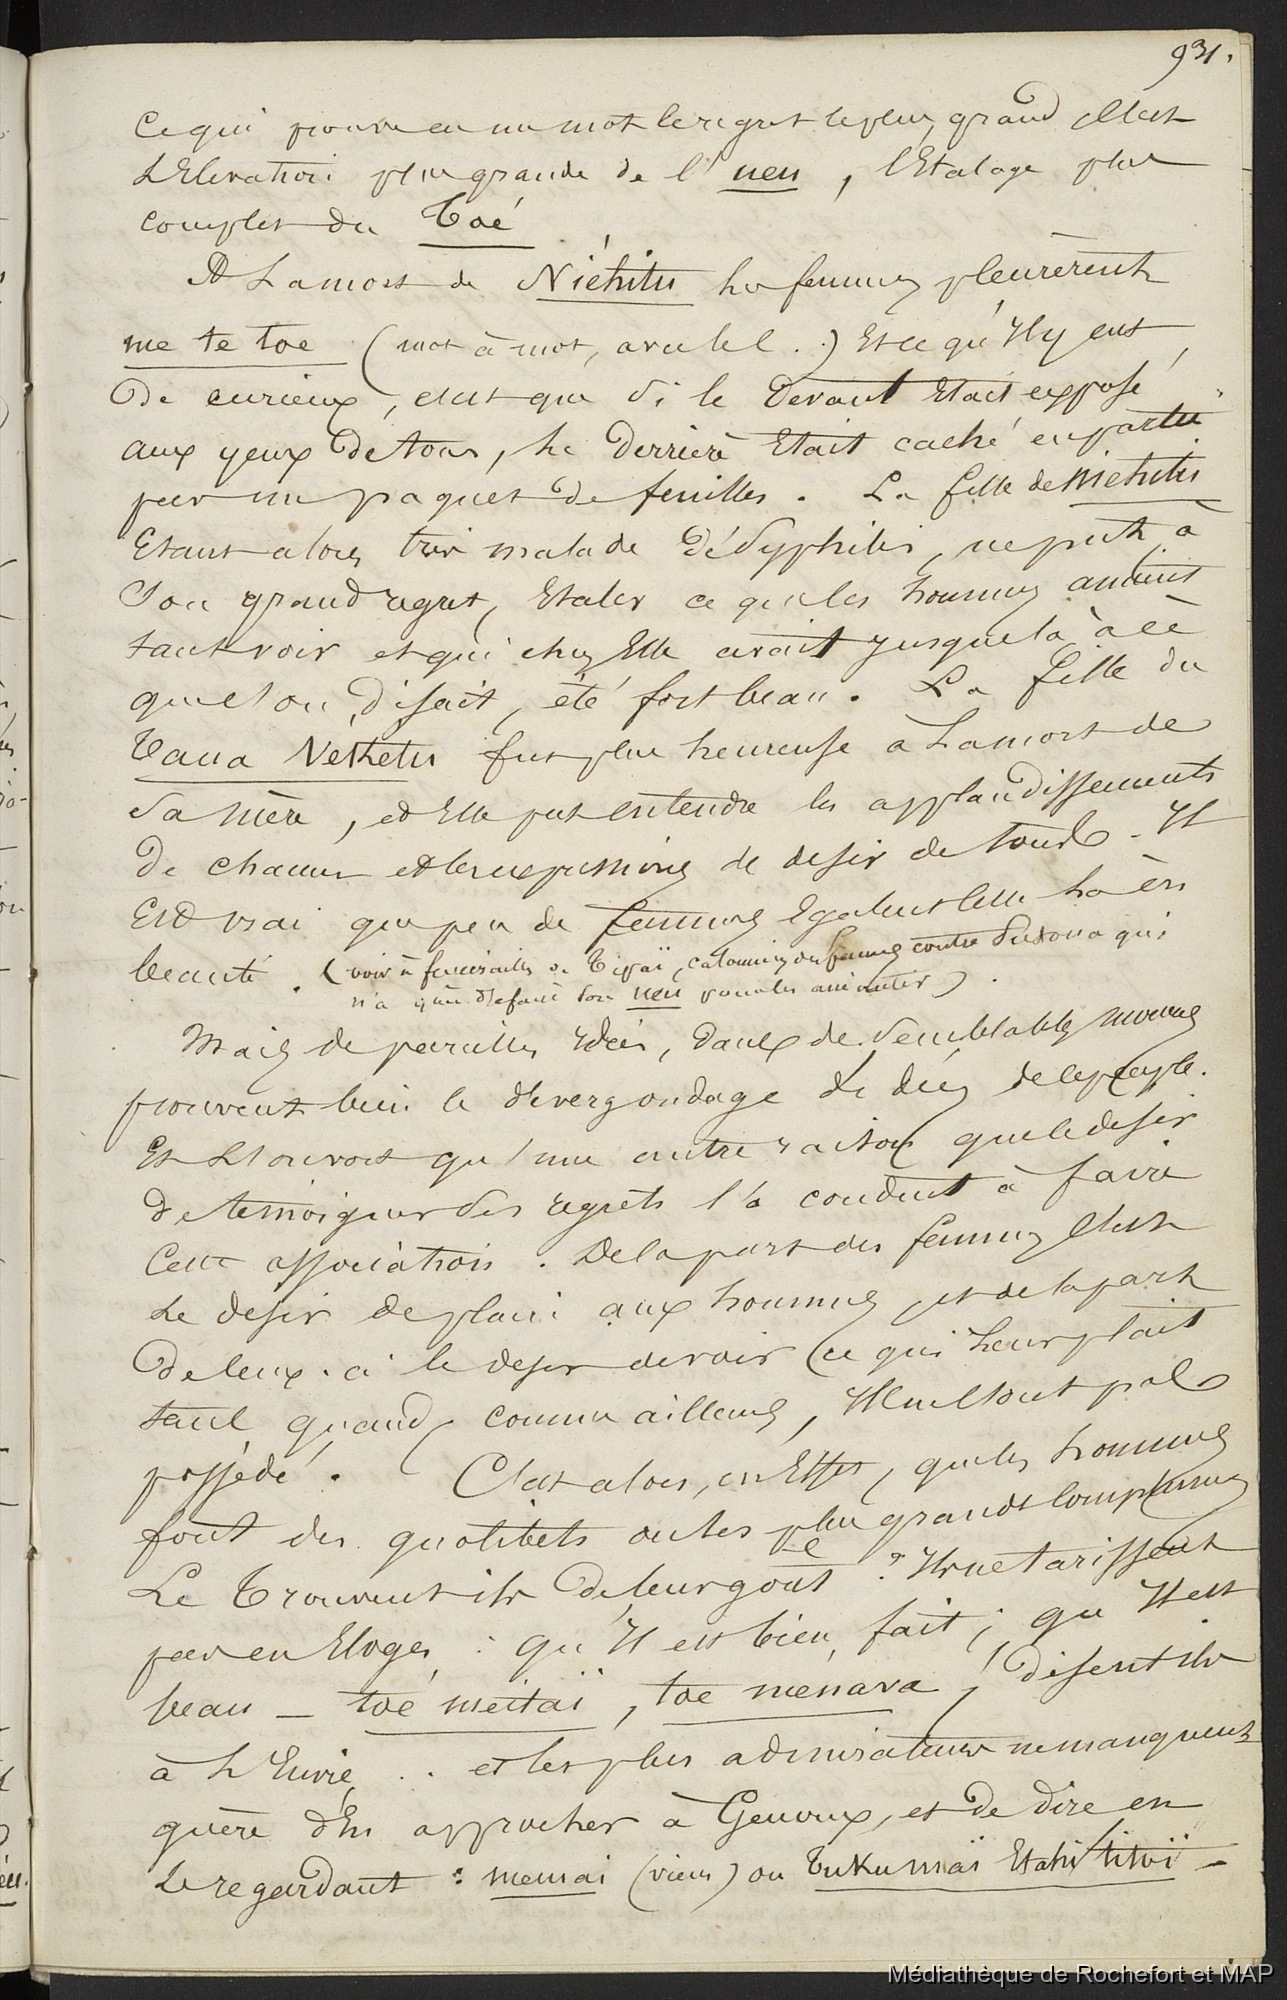 931.
Ce qui prouve en un mot le regret le plus grand c'est
L'Elevation plus grande de l' ueu, l'Etalage plus
complet du Toé
A La mort de Niéhitu les femmes pleurèrent
me te toe (mot à mot, avec le c..) Et ce qu'Il y eut
De curieux, c'est que si le Devant Etait exposé
aux yeux De tous, le Derrière Etait caché en partie
par un paquet De feuilles. La fille de Niehitu
Etant alors très malade De Syphilis, ne put à
Son grand regret, Etaler ce que les hommes aiment
tant voir et qui chez Elle avait jusque là à ce
que l'on Disait, été fort beau. La fille du
Taua Vehetu fut plus heureuse à La mort de
sa Mère, et Elle put entendre les applaudissements
De chacun et les expressions de desir de tous. Il
Est vrai que peu de femmes Egalent celle là en
beauté. (voir à funérailles de Tipaï, calomnies des femmes contre qui
n'a qu'à défaire son ueu pour les anéantir).
Mais de pareilles Idées, Dans de semblables moeurs
prouvent bien le dévergondage de ce peuple.
Et L'on voit qu'une autre raison que le desir
De temoigner des regrets l'a conduit à faire
Cette association. De la part des femmes c'est
Le desir de plaire aux hommes, et de la part
De ceux-ci le desir de voir ce qui Leur plait
tant quand, comme ailleurs, Ils n'en sont pas
possédé. C'est alors, en Effet, que les hommes
font des quolibets ou les plus grands compliments
Le Trouvent-ils De leur goût ? Ils ne tarissent
pas en Eloges : qu'Il est bien fait ; qu'Il est
beau — toé meitaï, toe ménava, Disent-ils
à L'Envie, .. et les plus admirateurs ne manquent
guère d'En approcher à Genoux, et De dire en
Le regardant : memai (viens) ou Tukumaï Etahi titoï -
Médiathèque de Rochefort et MAP